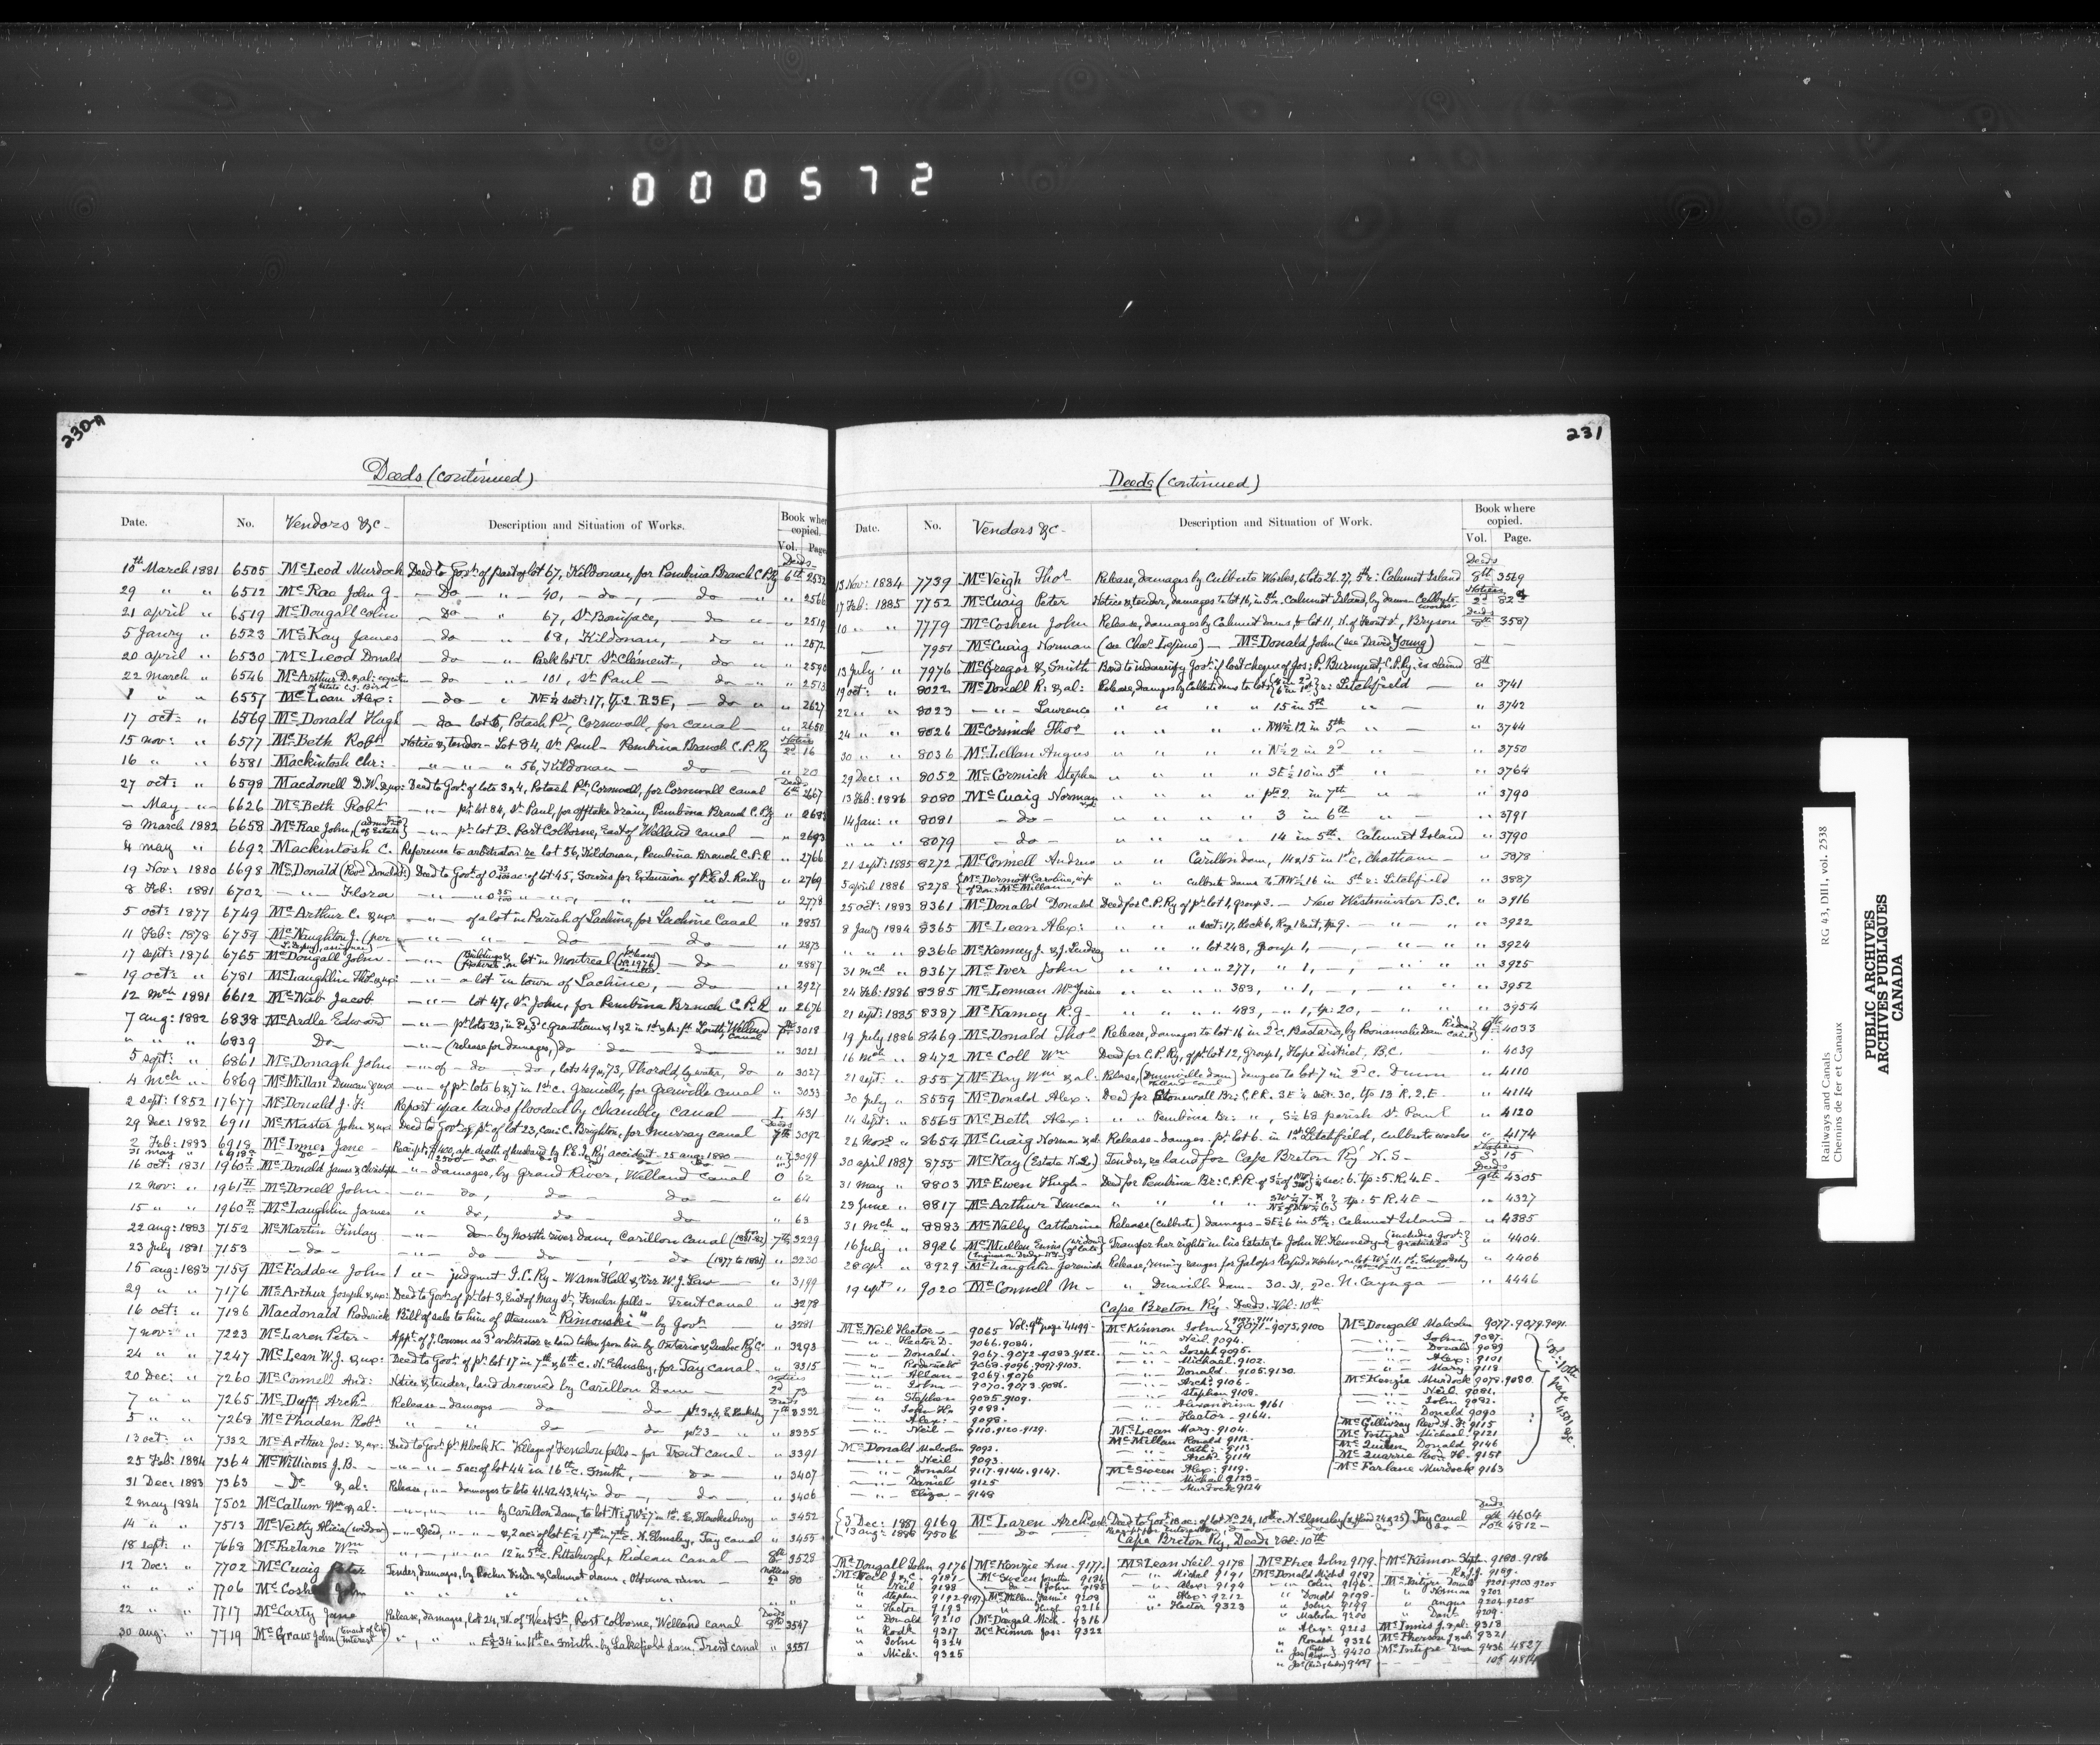 000572
230-A
Deeds (continued)
Date. No. Vendors &c- Description and Situation of Works. Book where copied. Vol. Page
Deeds
10th March 1881 6505 McLeod Murdock Deed to Govt. of part of lot 67, Kildonan, for Pembina Branch C.P.Ry 6th 2532
29 " " 6512 McRae John G. - Do - " - 40, - do -, - do - " " 2566
21 april " 6519 McDougall Colin - Do - " 67, St. Boniface, - do " " 2519
5 Janry " 6523 McKay James - do - " 68, Kildonan, - do " " 2872
20 april " 6530 McLeod Donald - do - " Park lot V. St. Clément, do " " 2590
22 March " 6546 McArthur D. & al: - do - " 101, St. Paul - do " " 2513
of Estate C.J. Bird
1 " " 6557 McLean Alex: - do - " NE¼ sect: 17, tp. 2 R3E, - do " " 2627
17 oct: " 6569 McDonald Hugh - do - lot 6, Potash Pt., Cornwall, for canal - " 2650
15 nov: " 6577 McBeth Robt. Notice & tender - Lot 84, St. Paul - Pembina Branch C.P.Ry Notices 2d 16
16 " " 6581 Mackintosh Chr: " - " - " 56, Kildonan - do - " 20
27 oct: " 6598 Macdonell D.W. & ux: Deed to Govt. of lots 3 & 4, Potash Pt., Cornwall, for Cornwall canal Deeds 6th 2667
- May - " 6626 McBeth Robt. - " - pt. lot 84, St. Paul, for offtake drain, Pembina Branch C.P.Ry
8 March 1882 6658 McRae John, (admtor of Estate) - " - pt. lot B. Port Colborne, East of Welland canal - " 2693
4 may " 6692 Mackintosh C. Reference to arbitrators re lot 56, Kildonan, Pembina Branch C.P.R " 2766
19 Nov: 1880 6698 McDonald (Revd. Donald) Deed to Govt. of ac: of lot 45, Souris for Extension of P.E.I. Railway " 2769
8 Feb: 1881 6702 - " - Flora " 2778
5 oct: 1877 6749 McArthur C. & ux - " - of a lot in Parish of Lachine, for Lachine Canal " 2851
11 Feb: 1878 6759 McNaughton J. (per - " - " - do - do " 2873
17 sept: 1876 6765 McDougall John - " - (Buildings & on lot in Montreal do - " 2887
19 oct: " 6781 McLaughlin Thos. & ux: - " - a lot in town of Lachine, - do " 2927
12 Mch 1881 6612 McNab Jacob - " - lot 47, St. John, for Pembina Branch C.P.R " 2676
7 aug: 1882 6838 McArdle Edward - " - pt. lots 23, in Grantham & 1 & 2 in 1st Louth, Welland Canal 3018
" " " 6839 Do - - " - (release for damages,) do do do " 3021
5 sept: " 6861 McDonagh John - " - of - do - do, lots 49, 73, Thorold by water, do " 3027
4 Mch " 6869 McMillan Duncan & ux - " - of pt. lots 6 & 7 in 1st c. Grenville, for Grenville canal " 3033
2 sept: 1852 17677 McDonald J. F. Report upon lands flooded by Chambly canal - I. 431
29 Dec: 1882 6911 McMaster John & ux Deed to Govt. of pt. of lot 23, Con: C. Brighton, for Murray canal Deeds 7th 3092
2 Feb: 1883 6918 McInnes Jane - Receipt, $400, a/c. death of husband by P.E.I. Ry accident - 25 aug: 1880 - 3099
16 oct: 1831 1960 McDonald James & Christoph - " - damages, by Grand River, Welland canal 0 62
12 Nov: " 1961 McDonell John - " - do, do - do - " 64
15 " " 1960 McLaughlin James " do, do do " 63
22 aug: 1883 7152 McMartin Finlay - " - do - by North river dam, Carillon Canal 7th 3229
23 July 1881 7153 - do - - " - do - do - , do (1877 to 1881) " 3230
15 aug: 1883 7159 McFadden John 1 " - judgment I.C.Ry - " 3199
29 " " 7176 McArthur Joseph & ux: Deed to Govt. of pt. lot 3, East of May St., Fenelon falls - Trent canal " 3278
16 oct: " 7186 Macdonald Rodrick Bill of sale to him of Steamer "Rimouski" - by Govt. " 3281
7 nov: " 7223 McLaren Peter - Appt. of J. Cowan as 3d arbitrator re land taken from him by Ontario & Quebec Ry Co. " 3293
24 " " 7247 McLean W.J. & ux: Deed to Govt. of pt. lot 17 in 7th & 6th c. N. Elmsley, for Tay canal - " 3315
20 Dec: " 7260 McConnell And: Notice & tender, land drowned by Carillon Dam - Notices 2d 73
7 " " 7265 McDuff Archd. Release - damages - do - do - Deeds 7th 3332
5 " " 7268 McPhaden Robt. " " do do pt. 23 - " " 3335
13 oct: " 7332 McArthur Jos: & ux: Deed to Govt. pt. Block K - Village of Fenelon falls - for Trent canal - " 3391
25 Feb: 1884 7364 McWilliams J.B. - - " - " - 5 ac: of lot 44 in 16th c. Smith, - do - " 3407
31 Dec: 1883 7363 - Do. & al: Release, " - damages to lots 41.42.43.44, - do -, do - " 3406
2 may 1884 7502 McCallum Wm. & al: - by Carillon Dam, to lot 7 in 1st c. E. Hawkesbury " 3452
14 " " 7513 McVeitty Alicia (widow) Deed, " 2 ac: of lot E½ 17 in 7th c. N. Elmsley, Tay canal " 3455
18 sept: " 7668 Wm. " 12 in 5th c. Pittsburgh, Rideau canal - 8th 3528
12 Dec: " 7702 McCuaig Peter Tender, damages, by Calumet dams, Ottawa river - Notices 2d 80
" " " 7706 McCoshen John
22 " " 7717 McCarty Jane Release, damages, lot 24, N. of West St., Port Colborne, Welland canal Deeds 8th 3547
30 aug: " 7719 McGraw John (tenant of life interest) " " " E½ 34 in 11th c. Smith - by Lakefield dam. Trent canal " 3557
231
Deeds (continued)
Date. No. Vendors &c- Description and Situation of Work. Book where copied. Vol. Page.
Deeds
13 Nov: 1884 7739 McVeigh Thos. Release, damages by Culbute Works, to lots 26.27, 5th r: Calumet Island 8th 3569
17 Feb: 1885 7752 McCuaig Peter Notice & tender, damages to lot 16, in 5th r. Calumet Island, by dams - Culbute works Notices 2d 82
10 " " 7779 McCoshen John Release, damages by Calumet dams, to lot 11, N. of Front St., Bryson Deeds 8th 3587
7951 McCuaig Norman (see Chas. Lepine) - McDonald John (see David Young) -
13 July " 7976 McGregor & Smith Bond to indemnify Govt. if lost cheque of Jos: P. Burmyeat, C.P.Ry. is claimed 8th
19 oct: " 8022 McDonell R. & al: Release, damages by Culbute dams to lots r: Litchfield - " 3741
22 " " 8023 - " - Lawrence " " " " 15 in 5th " - " 3742
24 " " 8026 McCormick Thos. " " " " NW½ 12 in 5th " " 3744
30 " " 8036 McLellan Angus " " " " N½ 2 in 2d " - " 3750
29 Dec: " 8052 McCormick Stephen " " " " SE½ 10 in 5th " - " 3764
13 Feb: 1886 8080 McCuaig Norman " " " " pt. 2 in 7th " - " 3790
14 Jan: " 8081 - do - " " " " 3 in 6th " - " 3791
" " " 8079 - do - " " " " 14 in 5th. Calumet Island " 3790
21 sept: 1885 8272 McConnell Andrew " " Carillon dam, 14 & 15 in 1st c. Chatham - " 3878
5 april 1886 8278 McDermott Caroline, wife of Don: McMillan " " culbute dams to NW½ 16 in 5th r: Litchfield " 3887
25 oct: 1883 8361 McDonald Donald Deed for C.P.Ry of pt. lot 1, group 3. - New Westminster B.C. " 3916
8 Janry 1884 8365 McLean Alex: " " " sect: 17, Block 6, Rg. 1 East, tp. 9. - " - " " 3922
" " " 8366 McKenney J. & J. Lindsay " " " lot 248, group 1, -, - " - " " 3924
31 Mch " 8367 McIver John " " " " 277, " 1, -, - " - " " 3925
24 Feb: 1886 8385 McLennan " " " " 383, " 1, -, - " " 3952
21 sept: 1885 8387 McKamey R.G. - " " " " 483, " 1, tp: 20, - " - " " 3954
19 July 1886 8469 McDonald Thos. Release, damages to lot 16 in 2d c. Bastard, by Poonamalie Dam Rideau Canal 9th 4033
16 Mch " 8472 McColl Wm Deed for C.P.Ry, of pt. lot 12, Group 1, Hope District, B.C. " 4039
21 sept: " 8557 McBay Wm & al: Release, (Dunnville dam) Welland canal damages to lot 7 in 2d c. Dunn " 4110
30 July " 8559 McDonald Alex: Deed for Stonewall Br: C.P.R. SE¼ sect: 30, tp 13 R.2.E. " 4114
14 sept: " 8565 McBeth Alex: " " Pembina Br: " " , S½ 68 parish St. Paul " 4120
26 Nov: " 8654 McCuaig Norman Release - damages - pt. lot 6 - in 1st Litchfield, culbute works " 4174
30 april 1887 8755 McKay (Estate N.L.) Tender, re land for Cape Breton Ry N.S. - Notices 3d 15
31 May " 8803 McEwen Hugh - Deed for Pembina Br: C.P.R. sec: 6. tp: 5. R.4.E - Deeds 9th 4305
29 June " 8817 McArthur Duncan tp: 5 R.4E - " 4327
31 Mch " 8883 McNally Catherine Release (Culbute) damages - SE½ 6 in 5th r: Calumet Island - " 4385
16 July " 8926 McMullen (widow of late) Transfer her rights in his Estate, to John H. Kennedy " 4404
28 apr: " 8929 McLaughlin Jeremiah Release, damages for Galops Rapids works, Edwardsburg " 4406
19 sept " 9020 McConnell M - " Dunnville dam - 30. N. Cayuga - " 4446
Cape Breton Ry. Deeds. Vol: 10th
McNeil Hector - - 9065 Vol: 9th page 4499 -
" " Hector D. 9066.9084.
" " Donald. 9067-9072-9083.9122.
" " Roderick 9068-9096.9097-9103.
" " Allan - 9069-9076
" " John - 9070.9073.9086.
" " Stephen 9085.9109.
" " John H. 9088.
" " Alex: - 9098.
" " Neil - 9110.9120.9129.
McDonald Malcolm 9092.
" " Neil 9093.
" " Donald 9117.9144.9147.
" " Daniel 9125
" " Eliza - 9148
McKinnon John 9071-9075.9100
" " Neil. 9094.
" " Joseph 9095.
" " Michael. 9102.
" " Donald - 9105.9130.
" " Archd: 9106 -
" " Stephen 9108.
" " Alexandrina 9161
" " Hector - 9164.
McLean Mary. 9104.
McMillan Ronald 9112.
" " Cath: - 9113
" " Archd. 9114
McSween Alex: 9119.
" " Michael 9123 -
" " Murdock 9124
McDougall Malcolm 9077-9079.9091.
" " John 9087.
" " Donald 9089
" " Alex: 9101
" " Mary 9118
McKenzie Murdock 9078.9080.
" " Neil 9081.
" " John 9082.
" " Donald 9090
McGillivray Revd. A. F. 9115
McIntyre Michael. 9121
McQueen Donald 9146
McQuarrie 9158
McFarlane Murdock 9163
Vol: 10th page 4501 &c.
3 Dec: 1887 9169 McLaren Archd. Deed to Govt. ac: of lot No. 24, 10th c. N. Elmsley Tay canal Deeds 9th 4604
13 aug: 1888 9506 - Do - 10th 4812 -
Cape Breton Ry, Deeds Vol: 10th
McDougall John 9176 McKenzie Ann - 9177 McLean Neil. 9178 McPhee John 9179. McKinnon Steph. 9183-9186
McNeil J. & C. - 9181 - McSween 9184 " Michael 9191 McDonald Michl 9187
" Neil 9188 " do - John 9185 " Alex: 9194 " Colin 9196 - McIntyre Donald 9201-9203-9205
" Stephen 9192-9197 McMillan 9208 " Alex: - 9212 " Donald 9198 - " Norman 9202
" Hector 9193 " Hugh 9216 " Hector 9323 " John 9199 " Angus 9204-9205
" Donald 9210 McDougall Mich - 9316 " Malcolm 9200 " Danl. 9209 -
" Rodk. 9317 McKinnon Jos: 9322 " Alex: 9213 McInnis J. & al: 9318
" John 9324 " Ronald 9326 McPherson J & al: 9321
" Mich: 9325 McIntyre 9436 4827
10th 4814
Railways and Canals
Chemins de fer et Canaux
RG 43, DIII, vol. 2538
PUBLIC ARCHIVES
ARCHIVES PUBLIQUES
CANADA